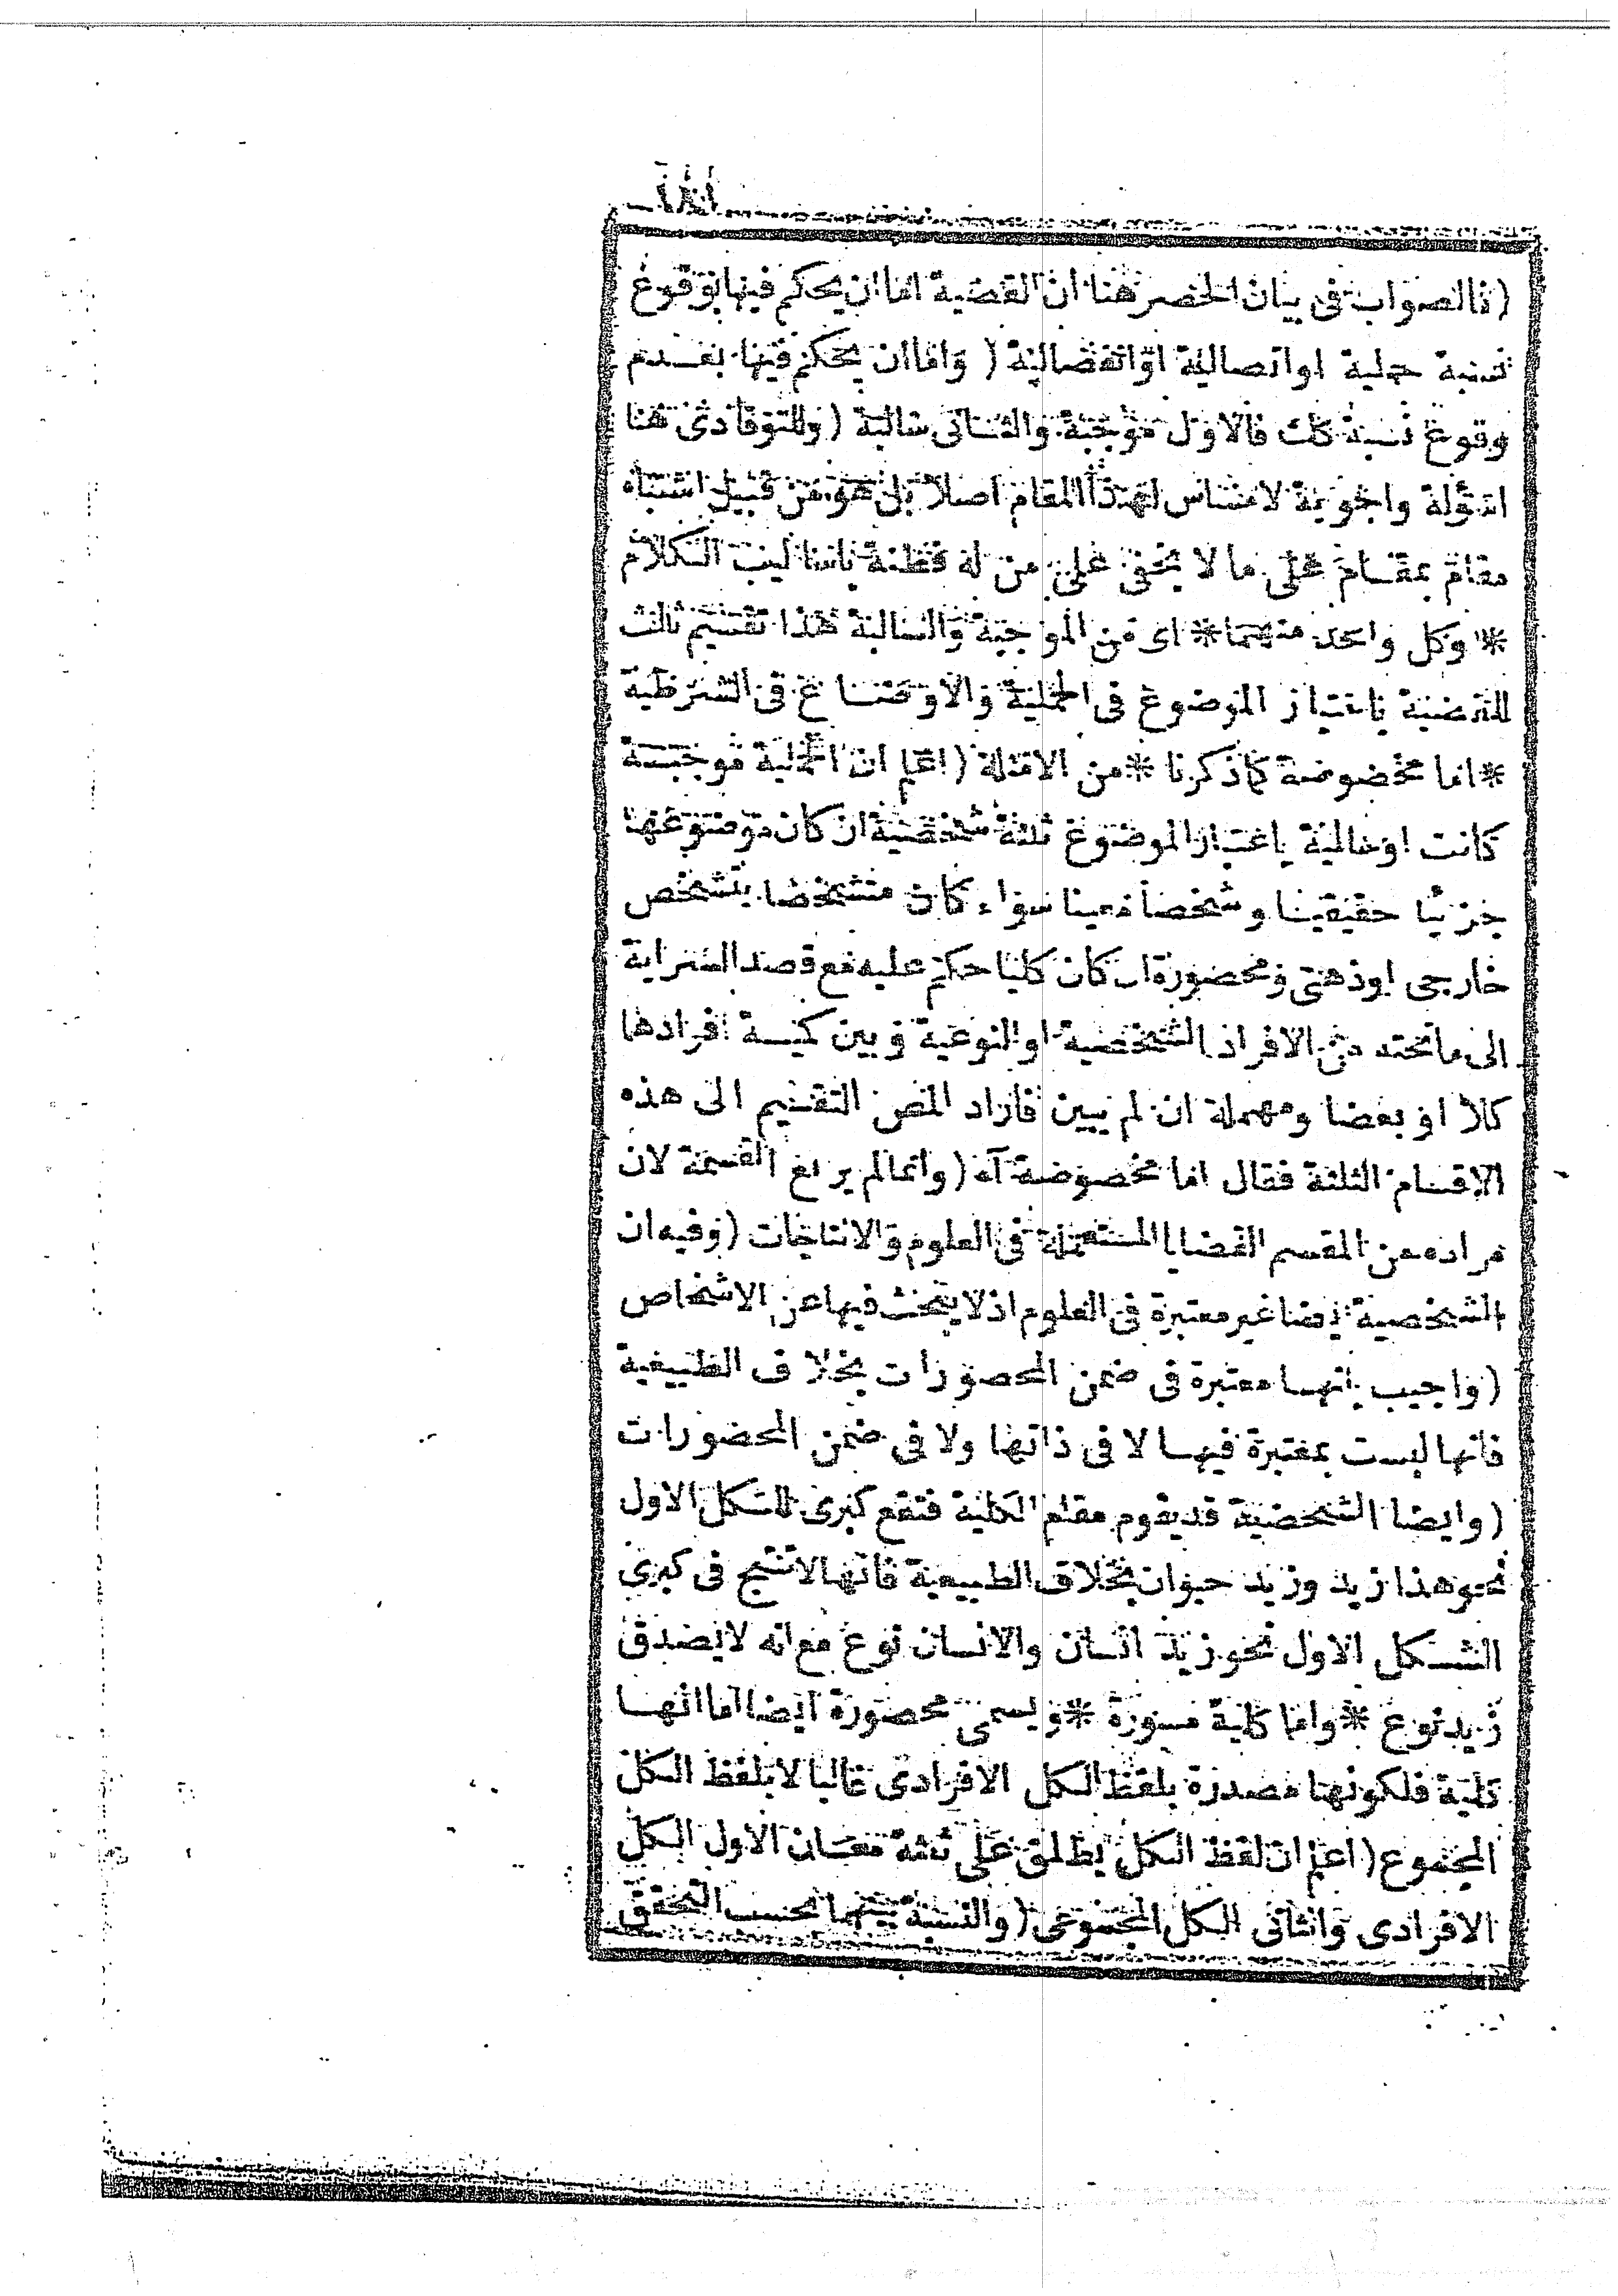 (فالصواب فى بيان الحصر هنا ان القضية اما ان يحكم فيها بوقوع
نسبة حملية او اتصالية او انفصالية (واما ان يحكم فيها بعدم
وقوع نسبة كك فالاول موجبة والثانى سالبة (وللتوقادى هنا
اسؤلة واجوبة لا مساس لهذا المقام اصلا بل هو من قبيل اشتباه
مقام بمقام على ما لا يخفى على من له فطنة باساليب الكلام
* وكل واحد منهما * اى من الموجبة والسالبة هذا تقسيم ثالث
للقضية باعتبار الموضوع فى الحملية والاوضاع فى الشرطية
* اما مخصوصة كما ذكرنا * من الامثلة (اعلم ان الحملية موجبة
كانت او سالبة باعتبار الموضوع ثلثة شخصية ان كان موضوعها
جزئيا حقيقيا وشخصا معينا سواء كان متشخصا بتشخص
خارجى او ذهنى ومحصورة ان كان كليا حكم عليه مع قصد السراية
الى ما تحته من الافراد الشخصية او النوعية وبين كمية افرادها
كلا او بعضا ومهملة ان لم يبين فاراد المص التقسيم الى هذه
الاقسام الثلثة فقال اما مخصوصة آه (وانما لم يربع القسمة لان
مراده من المقسم القضايا المستعملة فى العلوم والانتاجات (وفيه ان
الشخصية ايضا غير معتبرة فى العلوم اذ لا يبحث فيها عن الاشخاص
(واجيب بانها معتبرة فى ضمن المحصورات بخلاف الطبيعية
فانها ليست بمعتبرة فيها لا فى ذاتها ولا فى ضمن المحصورات
(وايضا الشخصية قد يقوم مقام الكلية فتقع كبرى للشكل الاول
نحو هذا زيد وزيد حيوان بخلاف الطبيعية فانها لا تنتج فى كبرى
الشكل الاول نحو زيد انسان والانسان نوع مع انه لا يصدق
زيد نوع * واما كلية مسورة * ويسمى محصورة ايضا اما انها
كلية فلكونها مصدرة بلفظ الكل الافرادى غالبا لا بلفظ الكل
المجموع (اعلم ان لفظ الكل يطلق على ثلثة معان الاول الكل
الافرادى والثانى الكل المجموعى (والنسبة بينهما بحسب التحقق